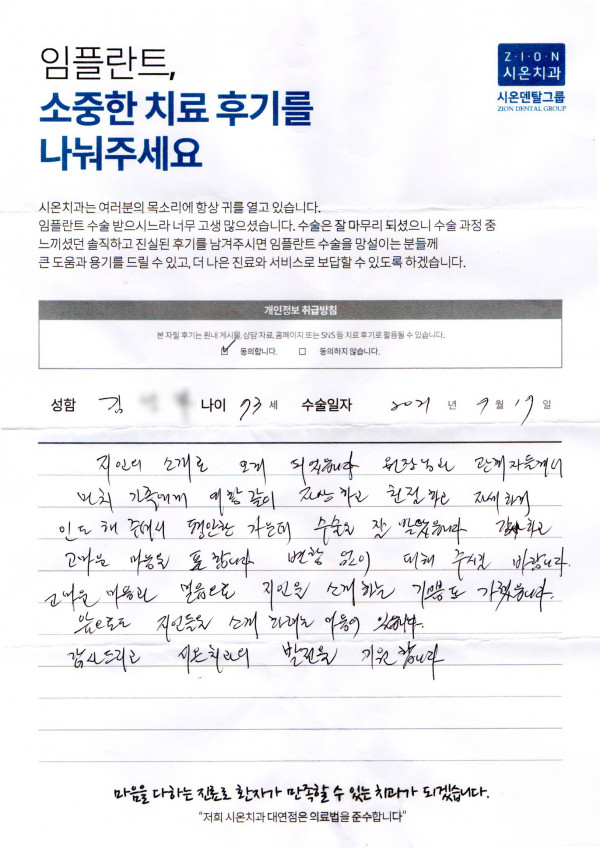 임플란트,
소중한 치료 후기를
나눠주세요
Z·I·O·N
시온치과
시온덴탈그룹
ZION DENTAL GROUP
시온치과는 여러분의 목소리에 항상 귀를 열고 있습니다.
임플란트 수술 받으시느라 너무 고생 많으셨습니다. 수술은 잘 마무리 되셨으니 수술 과정 중
느끼셨던 솔직하고 진실된 후기를 남겨주시면 임플란트 수술을 망설이는 분들께
큰 도움과 용기를 드릴 수 있고, 더 나은 진료와 서비스로 보답할 수 있도록 하겠습니다.
개인정보 취급방침
본 자필 후기는 원내 게시물, 상담 자료, 홈페이지 또는 SNS 등 치료 후기로 활용될 수 있습니다.
동의합니다. 동의하지 않습니다.
성함 김 나이 73 세 수술일자 2021 년 9 월 17 일
지인의 소개로 오게 되었습니다 원장님과 관계자들께서
마치 가족에게 대함 같이 자상하고 친절하고 자세하게
인도해 주셔서 평안한 가운데 수술을 잘 받았습니다 감사하고
고마운 마음을 표합니다 변함 없이 대해 주시길 바랍니다.
고마운 마음과 믿음으로 지인을 소개하는 기쁨도 가졌습니다.
앞으로도 지인들을 소개 하려는 마음이 있습니다.
감사드리고 시온치과의 발전을 기원합니다
마음을 다하는 진료로 환자가 만족할 수 있는 치과가 되겠습니다.
"저희 시온치과 대연점은 의료법을 준수합니다"